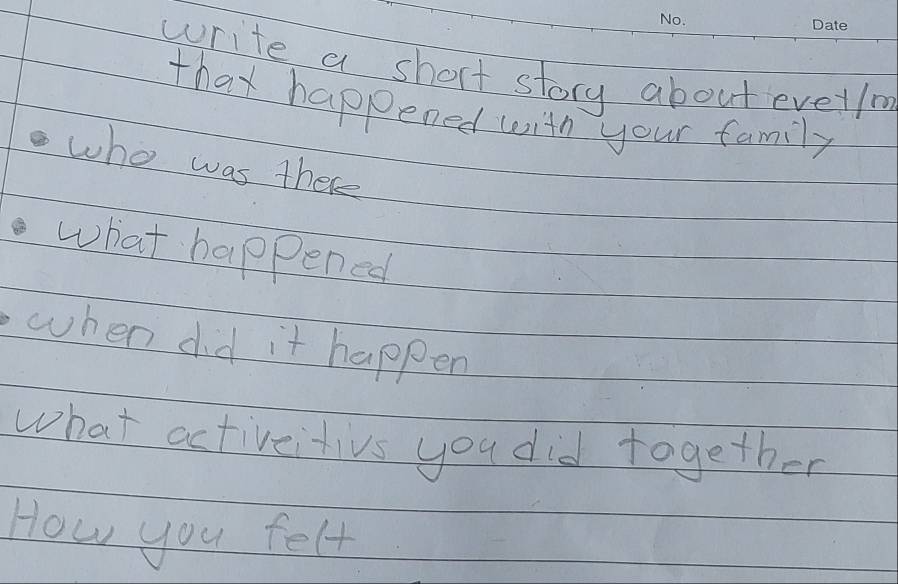 No.
Date
write a short story about evet/m
that happened with your family
• who was there
• what happened
• when did it happen
what activeitivs you did together
How you felt